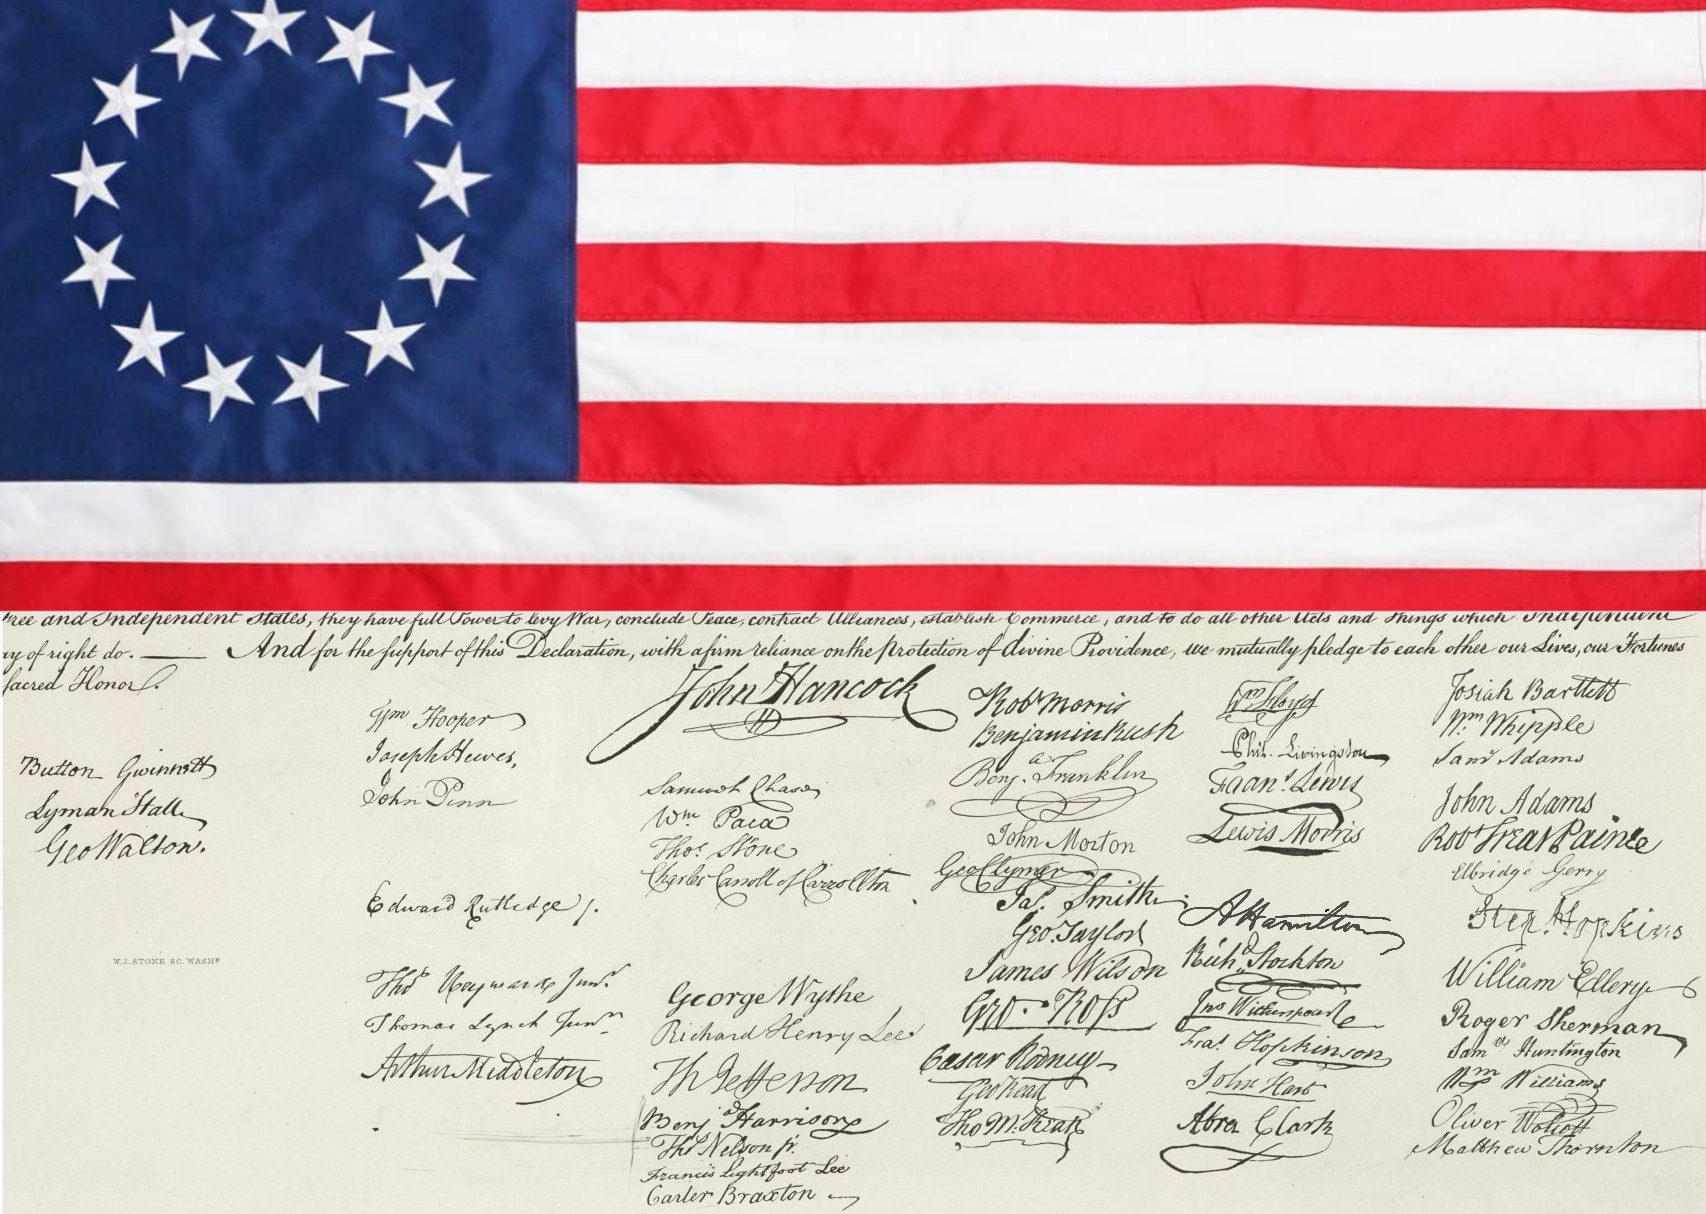 ree and Independent States, they have full Power to levy War, conclude Peace, contract Alliances, establish Commerce, and to do all other Acts and Things which Independent
ay of right do. —— And for the support of this Declaration, with a firm reliance on the protection of divine Providence, we mutually pledge to each other our Lives, our Fortunes
sacred Honor.
Button Gwinnett
Lyman Hall
Geo Walton.
W. J. STONE SC. WASHN
Wm Hooper
Joseph Hewes,
John Penn
Edward Rutledge /.
Thos Heyward Junr.
Thomas Lynch Junr.
Arthur Middleton
John Hancock
Samuel Chase
Wm. Paca
Thos. Stone
Charles Carroll of Carrollton
George Wythe
Richard Henry Lee
Th Jefferson
Benj Harrison
Thos Nelson jr.
Francis Lightfoot Lee
Carter Braxton
Robt Morris
Benjamin Rush
Benj. Franklin
John Morton
Geo Clymer
Jas. Smith
Geo. Taylor
James Wilson
Geo. Ross
Caesar Rodney
Geo Read
Tho M:Kean
Wm Floyd
Phil. Livingston
Frans. Lewis
Lewis Morris
A Hamilton
Richd. Stockton
Jno Witherspoon
Fras. Hopkinson
John Hart
Abra Clark
Josiah Bartlett
Wm. Whipple
Saml Adams
John Adams
Robt Treat Paine
Elbridge Gerry
Step. Hopkins
William Ellery
Roger Sherman
Saml Huntington
Wm Williams
Oliver Wolcott
Matthew Thornton